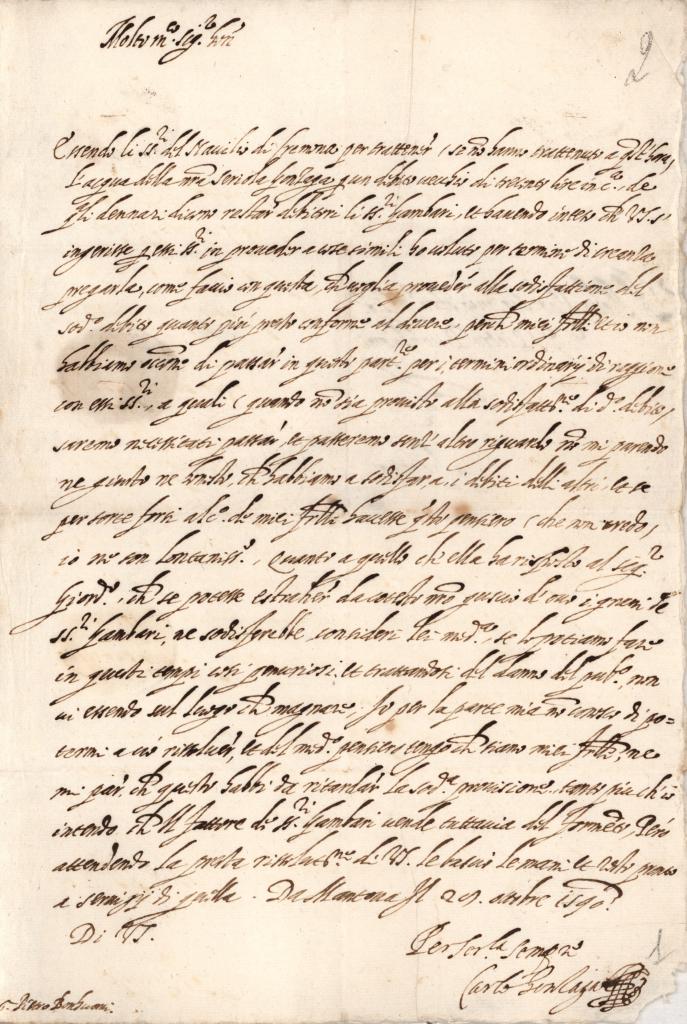 Molto m.co sig.r
2
Essendo li ss.ri del Naviglio di Cremona per trattener (se no hanno trattenuto a
l'acqua della nra seriola Gonzaga debito vecchio di trecento lire de
dennari diano restar debitori li ss.ri Gambari, et havendo inteso ch VS. s'
ingerisse ss.ri in proveder a cose simili ho voluto per termine di creanza
pregarla, come faccio con questa, ch voglia proveder alla sodisfattione del
sod.o debito quanto più presto conforme al dovere, perch miei flli et io non
habbiamo di passar in questo part.re per i termini ordinarij di raggione
con essi ss.ri, a quali (quando no sia provisto alla sodisfatt.ne di d.o debito,
saremo necessitati passar, et passeremo senz' altro riguardo no mi parendo
ne giusto ne honesto, ch habbiamo a sodisfar a i debiti delli altri, et se
per sorte forsi alc.o de miei flli havesse qsto pensiero (che non credo,
io ne son lontaniss.o, Quanto a quello che ella ha risposto al sig.r
Giord.o, ch se potesse estraher da cotesto i grani de
ss.ri Gambari, ne sodisferebbe, consideri lei med.a, se lo potiamo fare
in questi tempi così penuriosi, et trattandosi del danno del pub.o, non
vi essendo sul luogo ch magnare, Io per la parte mia no conosco di po=
termi a ciò risolver, et del med.o pensiero tengo ch siano miei flli, ne
mi par, ch questo habbi da ritardar la sod.a provisione, tanto più ch io
intendo ch Il fattore de ss.ri Gambari vende tuttavia del formento, Però
attendendo la presta risolut.ne di VS. le bascio le mani et resto pronto
a servigij di quella. Da Mantova Il 29. ottobre 1590.
Di VS.
Per ser.la sempre
Carlo Gonzaga
1